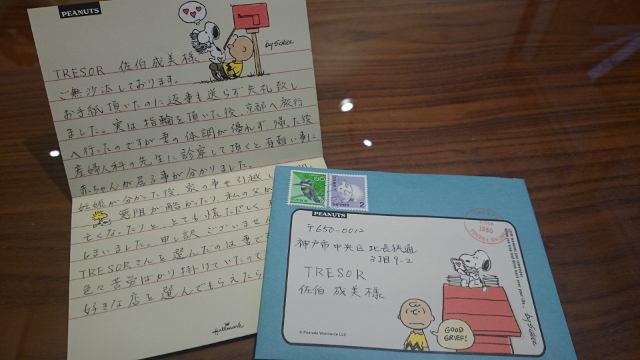 PEANUTS
by Schulz
TRESOR 佐伯 成美 様
ご無沙汰しております。
お手紙頂いたのに返事も送らず失礼致し
ました。実は指輪を頂いた後、京都へ旅行
へ行ったのですが妻の体調が優れず帰った後
産婦人科の先生に診察して頂くと有難い事に
赤ちゃんが居る事が分かりました。
妊娠が分かった後、家の事や引越し
亡くなったりと、とても慌ただしく
しまいました。申し訳ございません
TRESORさんを選んだのは妻で
色々苦労ばかり掛けていたので
好きな店を選んでもらえたら
Hallmark
90
2
PEANUTS
〒650-0012
神戸市中央区北長狭通
3丁目9-2
TRESOR
佐伯 成美 様
GOOD GRIEF!
by Schulz
© Peanuts Worldwide LLC